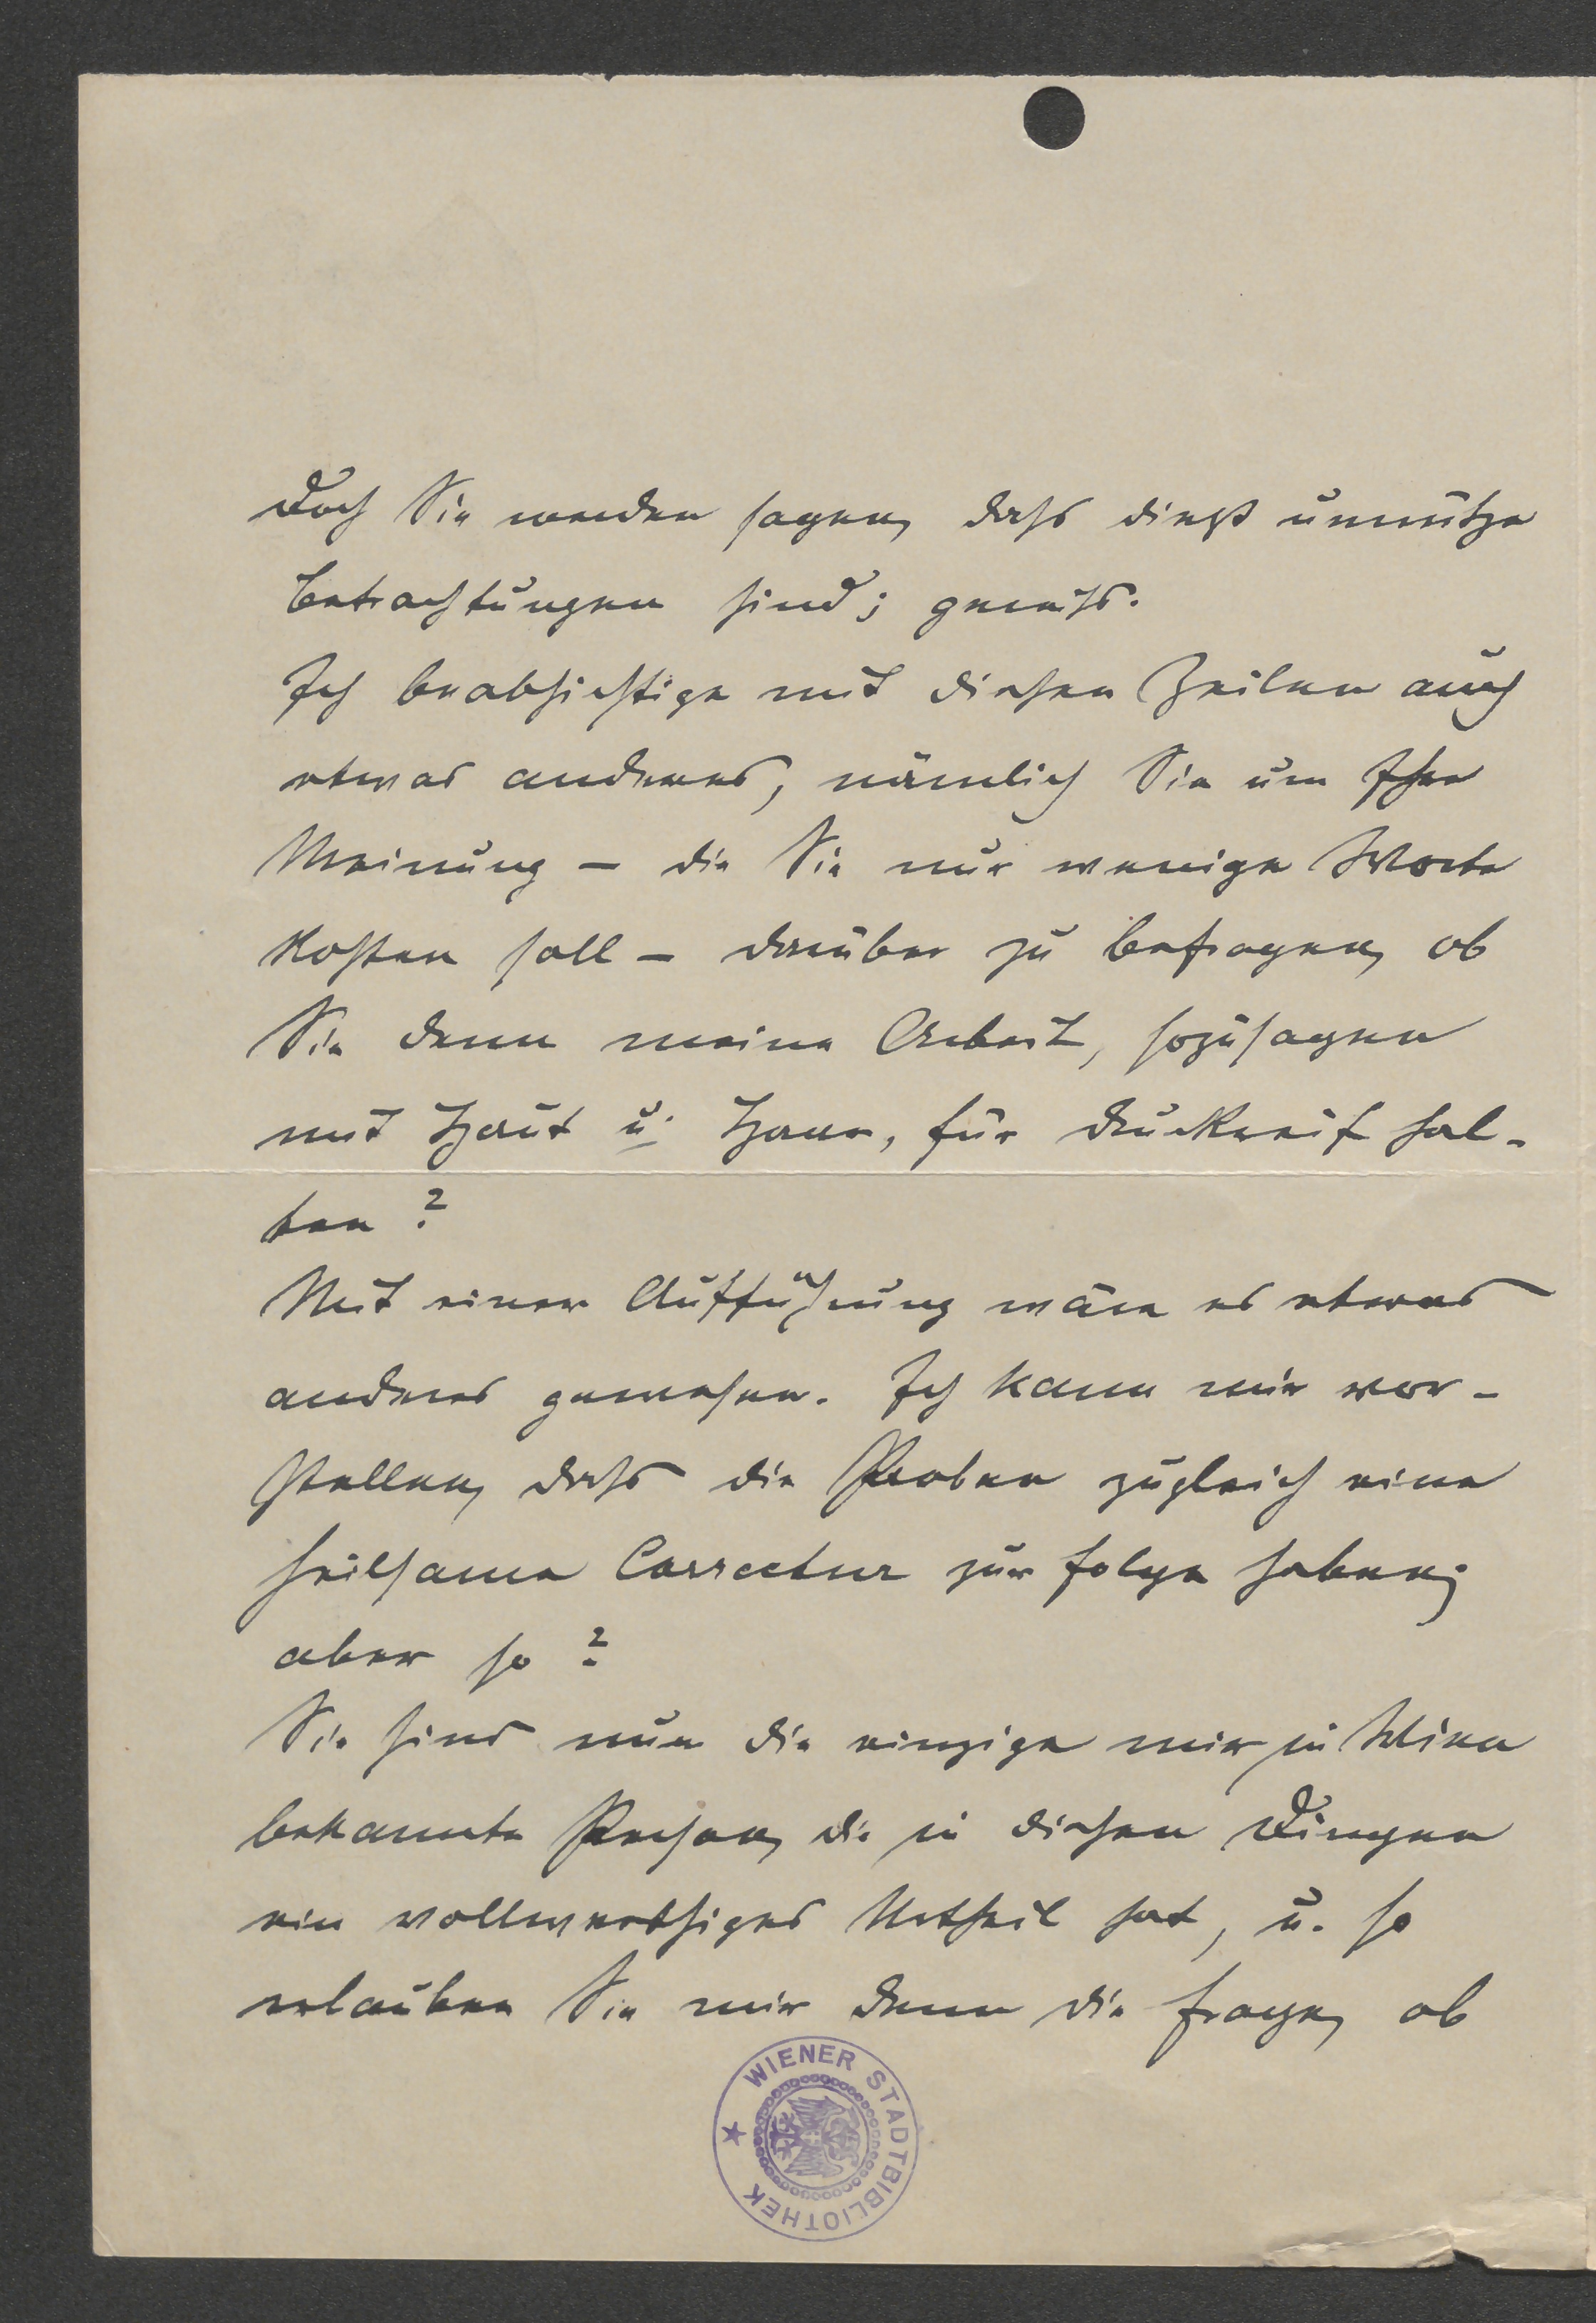 Doch Sie werden sagen, dass dieß unnütze
Betrachtungen sind; gewiss.
Ich beabsichtige mit diesen Zeilen auch
etwas anderes, nämlich Sie um Ihre
Meinung – die Sie nur wenige Worte
kosten soll – darüber zu befragen, ob
Sie denn meine Arbeit, sozusagen
mit Haut u. Haar, für druckreif hal-
ten?
Mit einer Aufführung wäre es etwas
anderes gewesen. Ich kann mir vor-
stellen, dass die Proben zugleich eine
heilsame Correctur zur Folge haben;
aber so?
Sie sind nun die einzige mir in Wien
bekannte Person, die in diesen Dingen
ein vollwerthiges Urtheil hat, u. so
erlauben Sie mir denn die Frage, ob
WIENER STADTBIBLIOTHEK